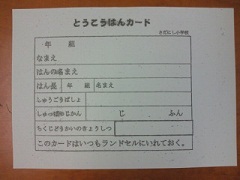 とうこうはんカード
さだにし小学校
年 組
なまえ
はんの名まえ
はん長 年 組 名まえ
しゅうごうばしょ
しゅっぱつじかん じ ふん
ちくこどもかいのきょうしつ
このカードはいつもランドセルにいれておく。